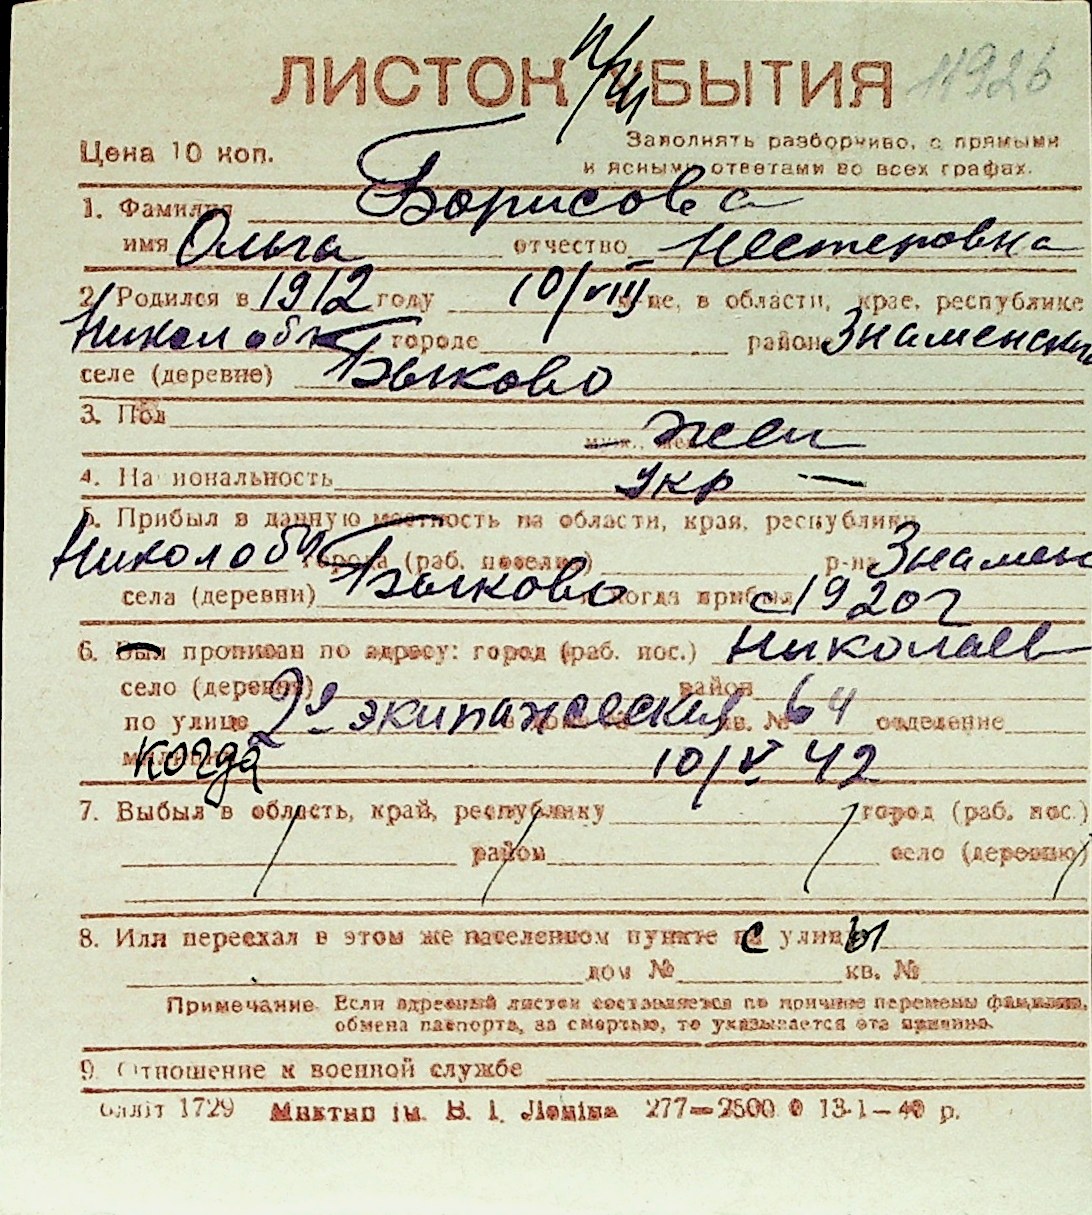 ЛИСТОК УБЫТИЯ 11926
Цена 10 коп.
Заполнять разборчиво, с прямыми
и ясными ответами во всех графах.
1. Фамилия Борисова
имя Ольга отчество Нестеровна
2. Родился в 1912 году 10/VIII м-це, в области, крае, республике
Никол обл городе район Знаменский
селе (деревне) Быково
3. Пол муж., жен. жен
4. Национальность укр —
5. Прибыл в данную местность из области, края, республики
Никол обл города (раб. поселка) р-на Знамен
села (деревни) Быково и когда прибыл с 1920 г
6. Был прописан по адресу: город (раб. пос.) Николаев
село (деревня) район
по улице 2я экипажеская кв. № 64 отделение
милиции когда 10/V 42
7. Выбыл в область, край, республику город (раб. пос.)
район село (деревню)
8. Или переехал в этом же населенном пункте с улицы
дом № кв. №
Примечание. Если адресный листок составляется по причине перемены фамилии,
обмена паспорта, за смертью, то указывается эта причина.
9. Отношение к военной службе
Оллiт 1729 Миктип iм. В. I. Ленiна 277—2500 0 13-1—40 р.